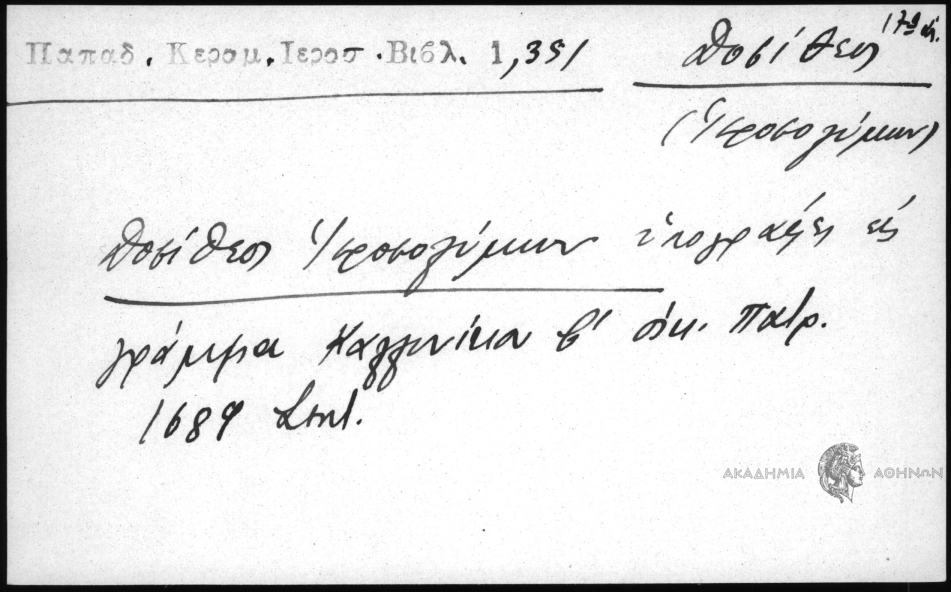 17ος αἰ.
Παπαδ. Κεραμ. Ιεροσ. Βιβλ. 1,351
Δοσίθεος
(Ἱεροσολύμων)
Δοσίθεος Ἱεροσολύμων ὑπογράφει εἰς
γράμμα Καλλινίκου β' οἰκ. πατρ.
1689 Σεπτ.
ΑΚΑΔΗΜΙΑ ΑΘΗΝΩΝ